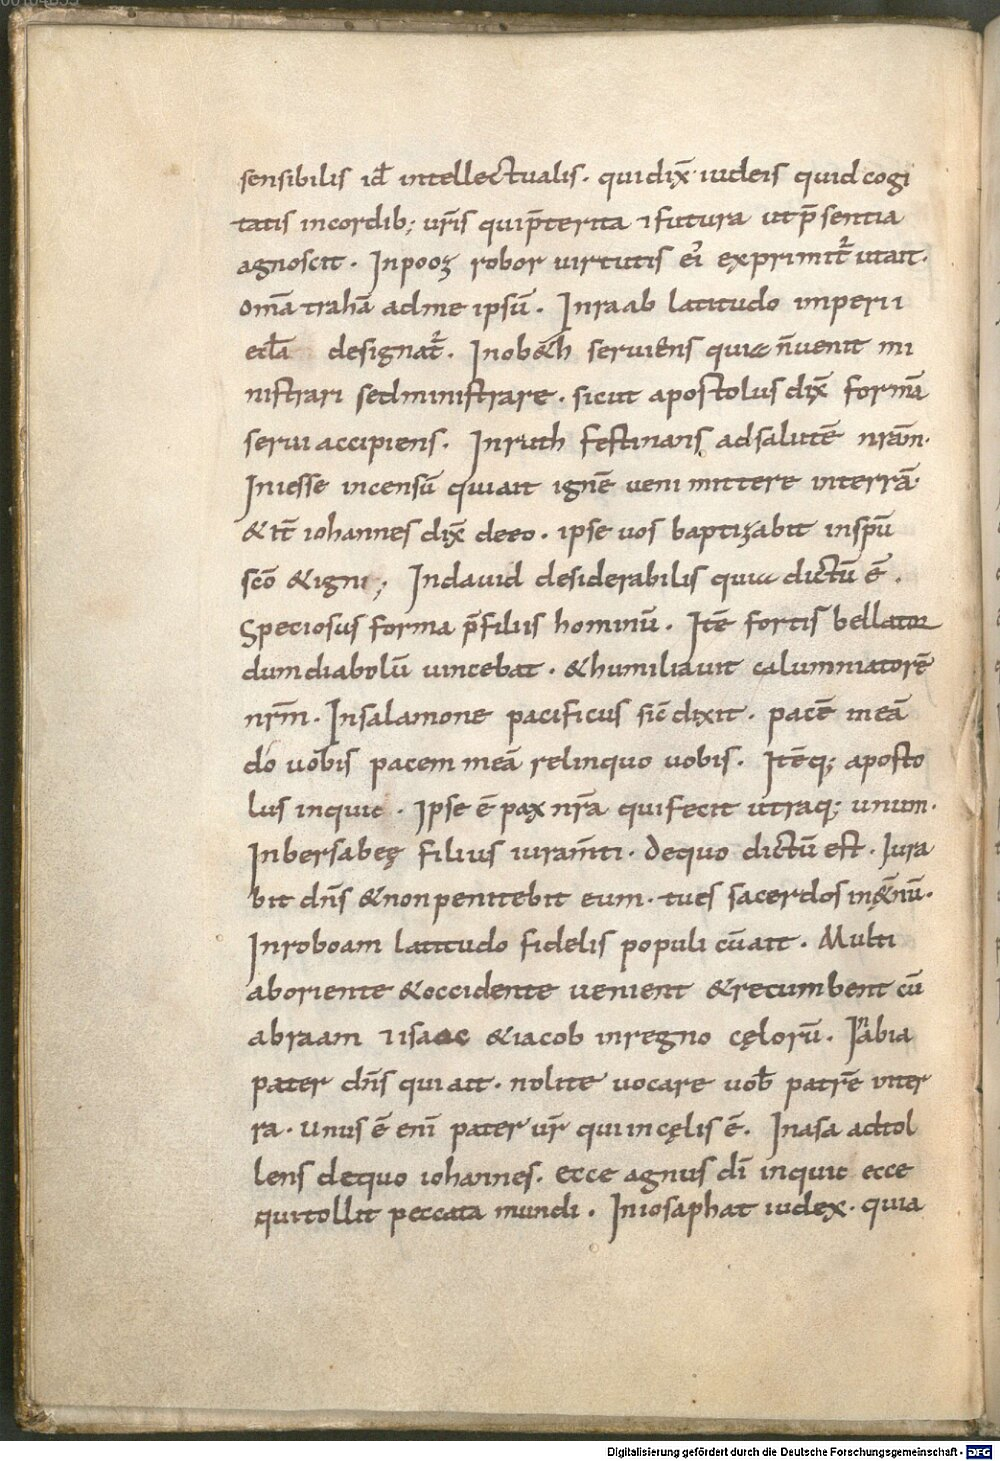 sensibilis id̄ intellectualis. quidix̄ iudeis quid cogi
tatis incordib; ur̄is quip̄terita ⁊futura utp̄sentia
agnoscit. Inpooz robor uirtutis ei exprimit̄ utait.
Om̄a trahā adme ipsū. Inraab latitudo imperii
eccl̄a designat̄. Inobeth seruiens quia n̄uenit mi
nistrari sedministrare. sicut apostolus dix̄ formā
serui accipiens. Inruth festinans adsalutē nr̄am.
Iniesse incensū quiait ignē ueni mittere interrā.
& it̄ iohannes dix̄ deeo. ipse uos baptizabit insp̄u
sc̄o &igni; Indauid desiderabilis quia dictū ē.
Speciosus forma p̄filiis hominū. Itē fortis bellator
dumdiabolū uincebat. &humiliauit calumniatorē
nr̄m. Insalamone pacificus sic̄ dixit. pacē meā
do uobis pacem meā relinquo uobis. Itēq; aposto
lus inquit. Ipse ē pax nr̄a quifecit utraq; unum.
Inbersabeę filius iuram̄ti. Dequo dictū est. Iura
bit dn̄s &nonpenitebit eum. tues sacerdos in&̄nū.
Inroboam latitudo fidelis populi cūait. Multi
aboriente &occidente uenient &recumbent cū
abraam ⁊isaac &iacob inregno cęlorū. Inabia
pater dn̄s quiait. nolite uocare uob̄ patrē inter
ra. Unus ē enī pater ur̄ quiincęlis ē. Inasa adtol
lens dequo iohannes. ecce agnus dī inquit ecce
quitollit peccata mundi. Iniosaphat iudex. quia
Digitalisierung gefördert durch die Deutsche Forschungsgemeinschaft - DFG